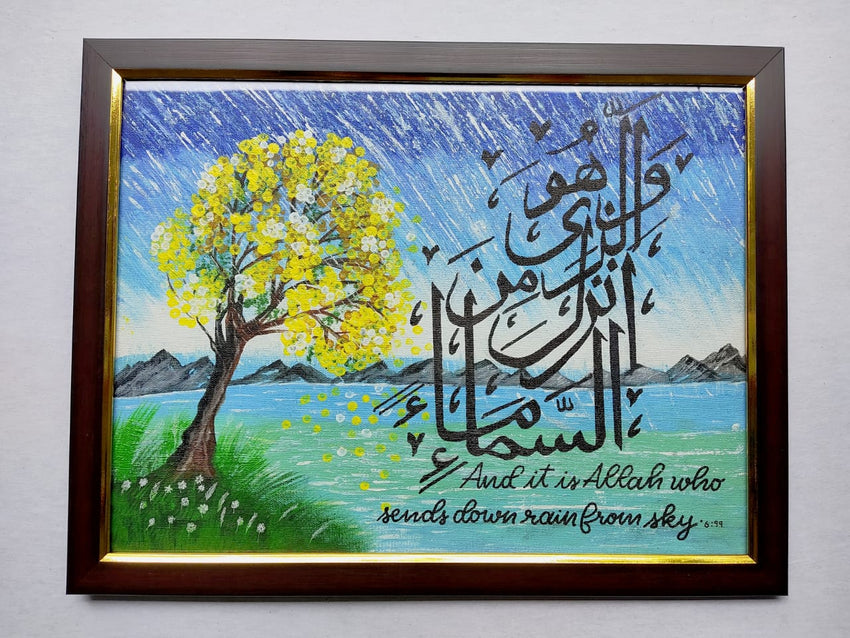 وَهُوَ
الَّذِي
أَنزَلَ مِنَ
السَّمَاءِ مَاءً
And it is Allah who
sends down rain from sky. 6:99